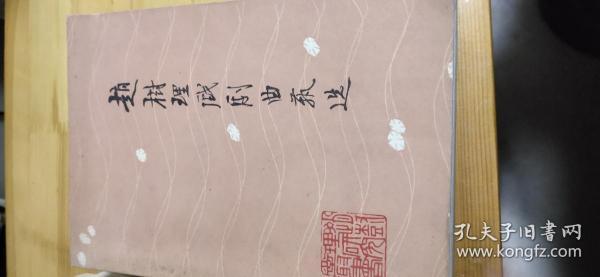 趙树理戏剧曲艺选
孔夫子旧书网
kongfz.com